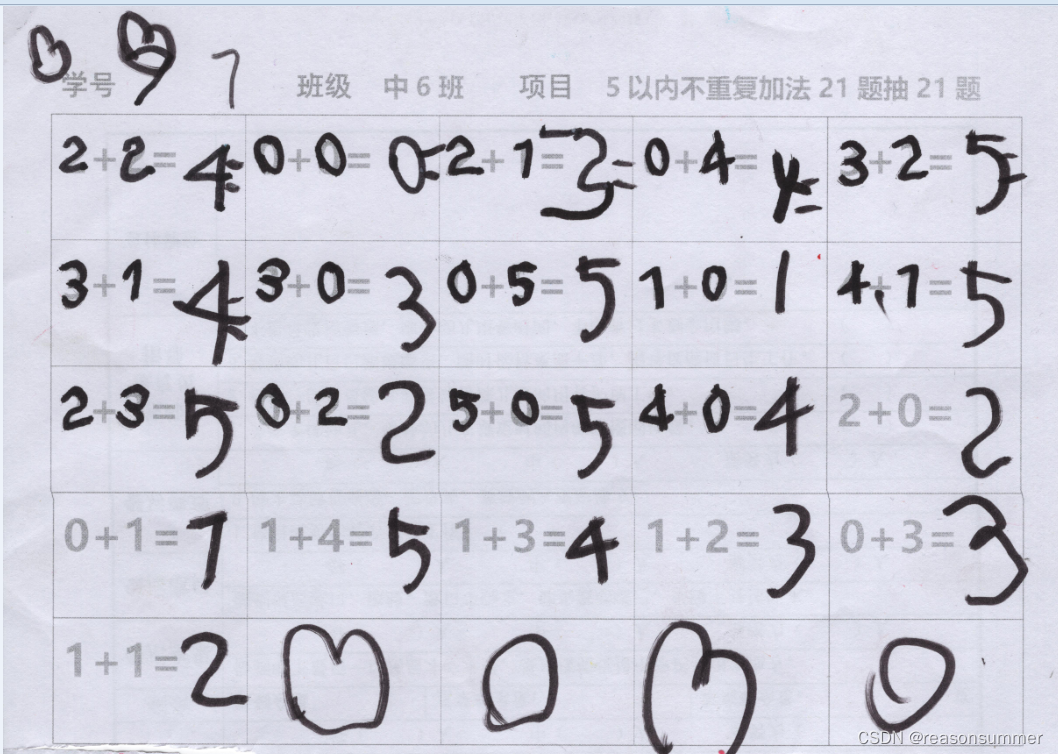 7
学号 班级 中6班 项目 5以内不重复加法21题抽21题
2+2= 4= 0+0= 0= 2+1= 3= 0+4= 4= 3+2= 5=
3+1= 4= 3+0= 3 0+5= 5 1+0= 1 4+1= 5
2+3= 5 0+2= 2 5+0= 5 4+0= 4 2+0= 2
0+1= 1 1+4= 5 1+3= 4 1+2= 3 0+3= 3
1+1= 2
CSDN @reasonsummer